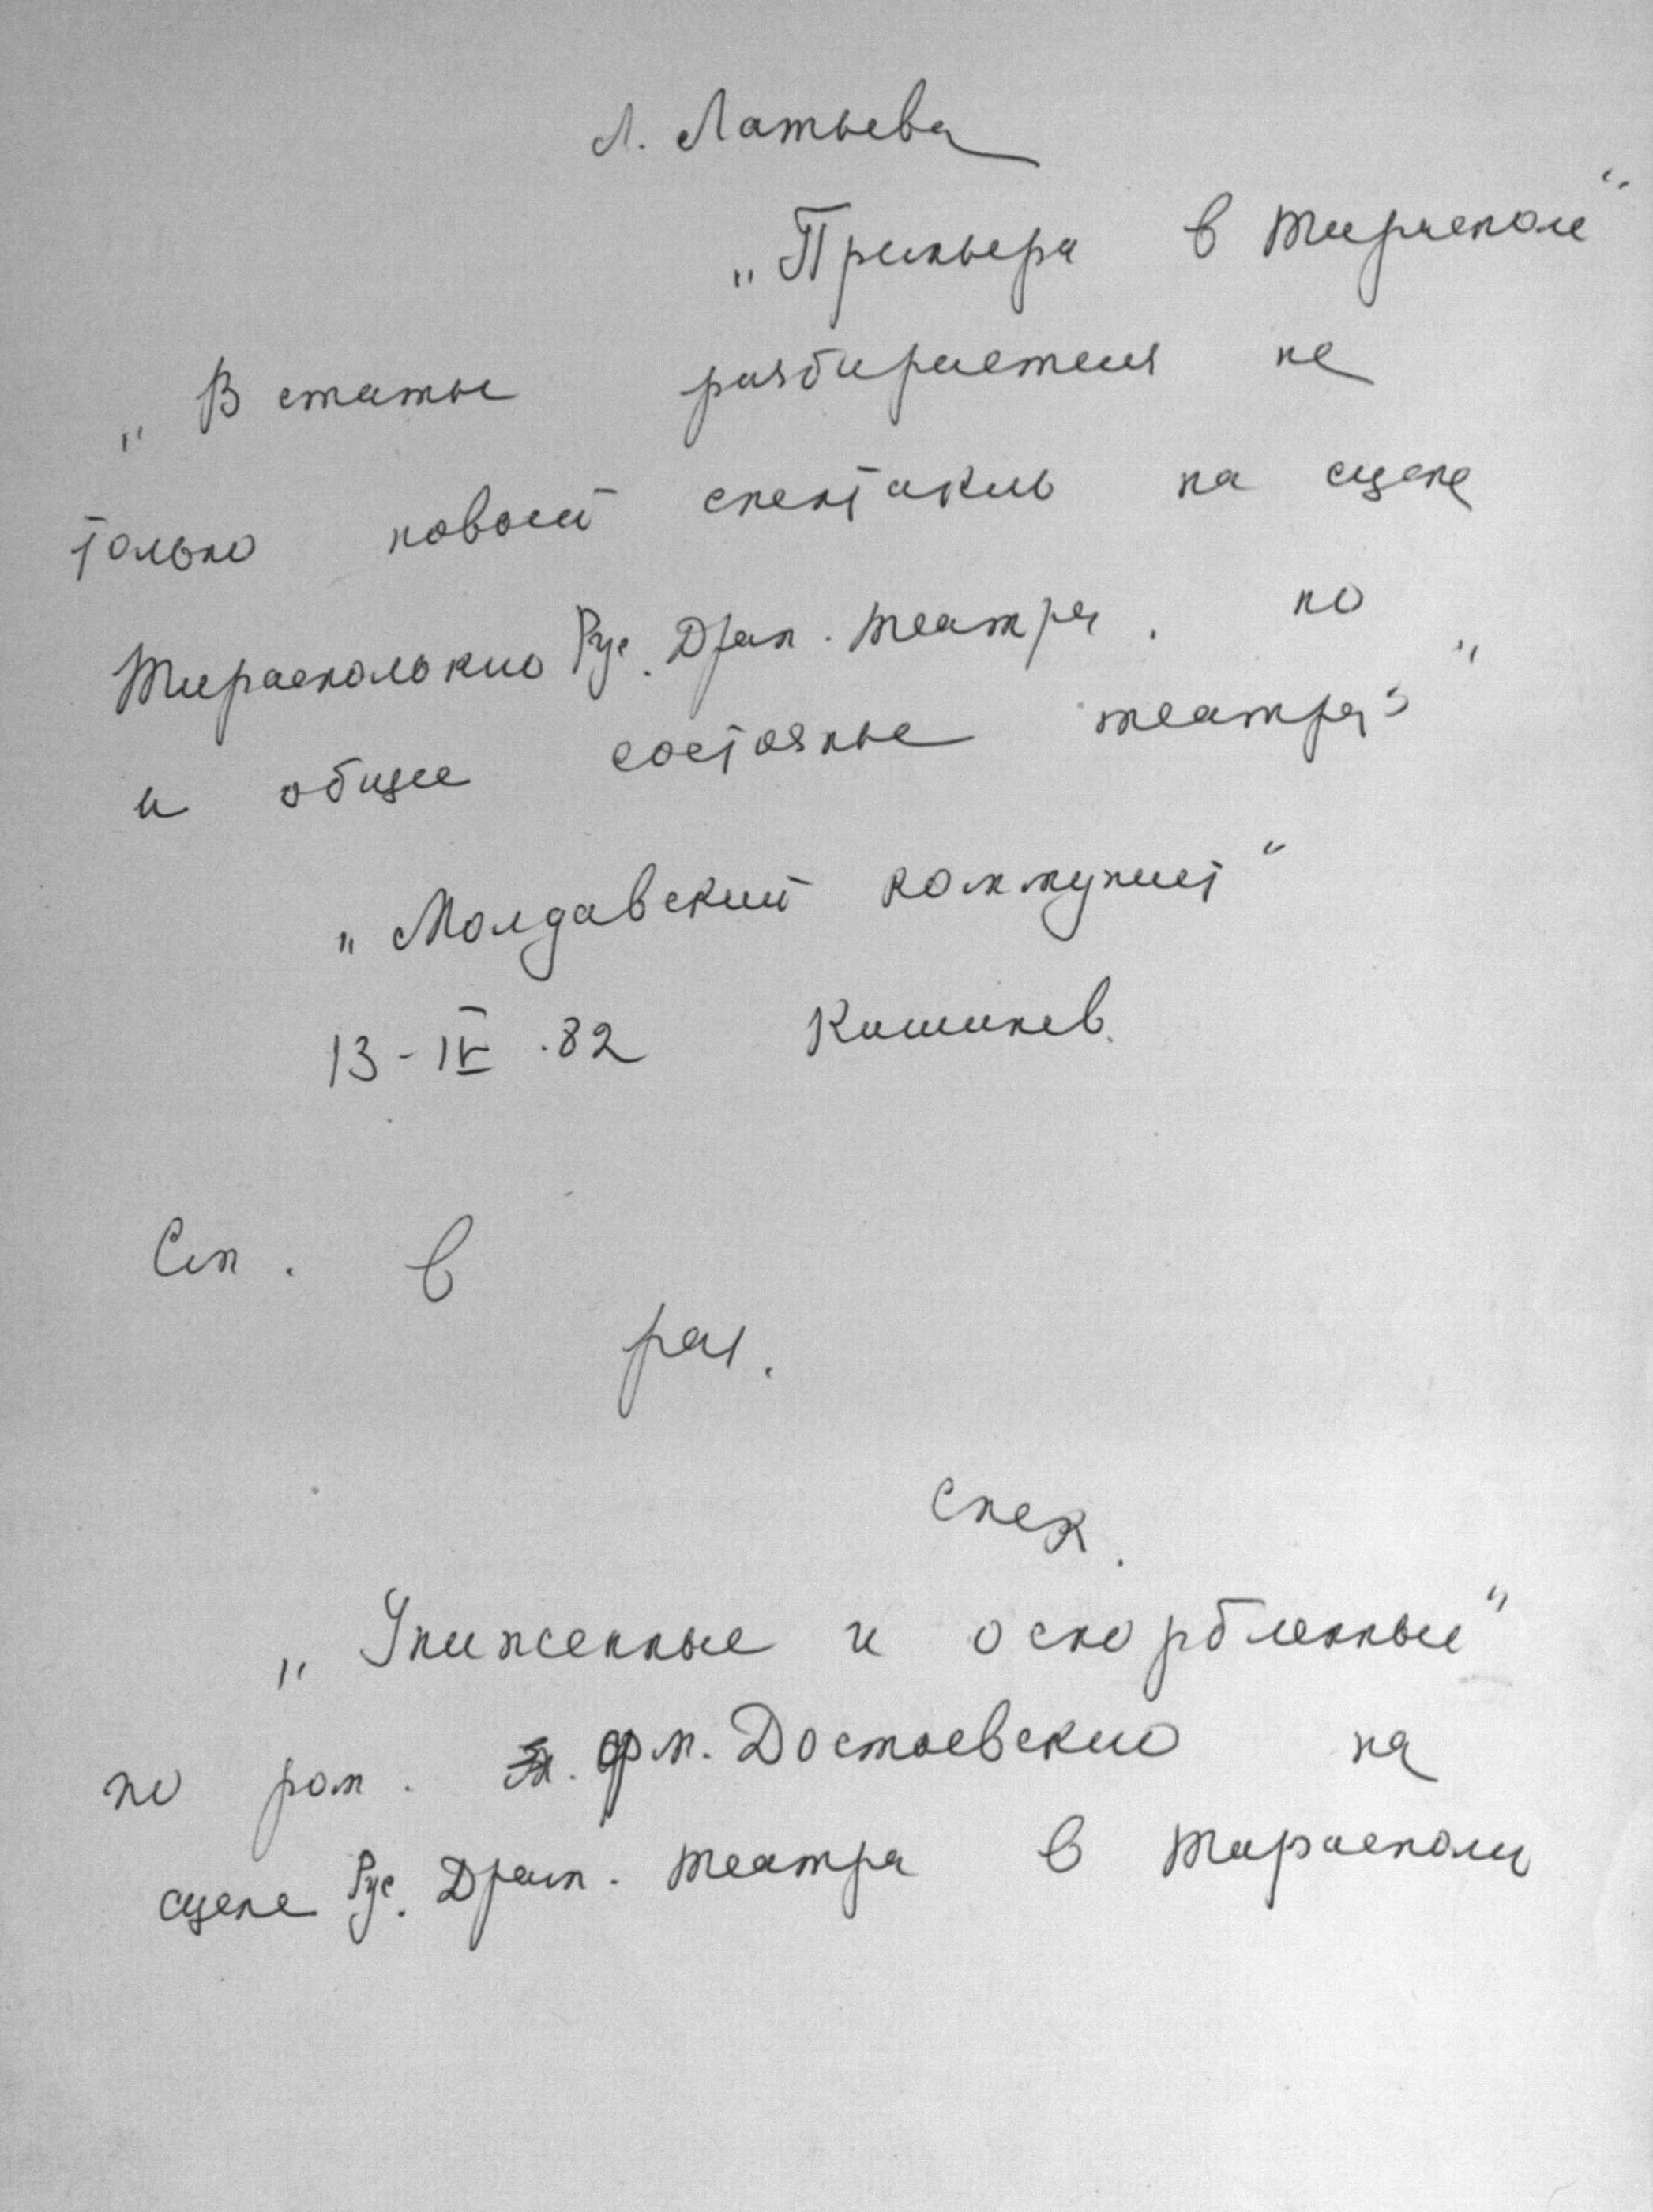 Л. Латьева
„Примьера в Тирасполе“
„В статье разбирается не
только новый спектакль на сцене
Тирасполькио Рус. Драм. театра. но
и общее состоянье театра“
„Молдавский коммунист“
13-IV.82 Кишинев.
См. в
рец.
спек.
„Униженные и оскорбленные“
по ром. Ф.М. Достоевскио на
сцене Рус. Драм. театра в Тирасполи